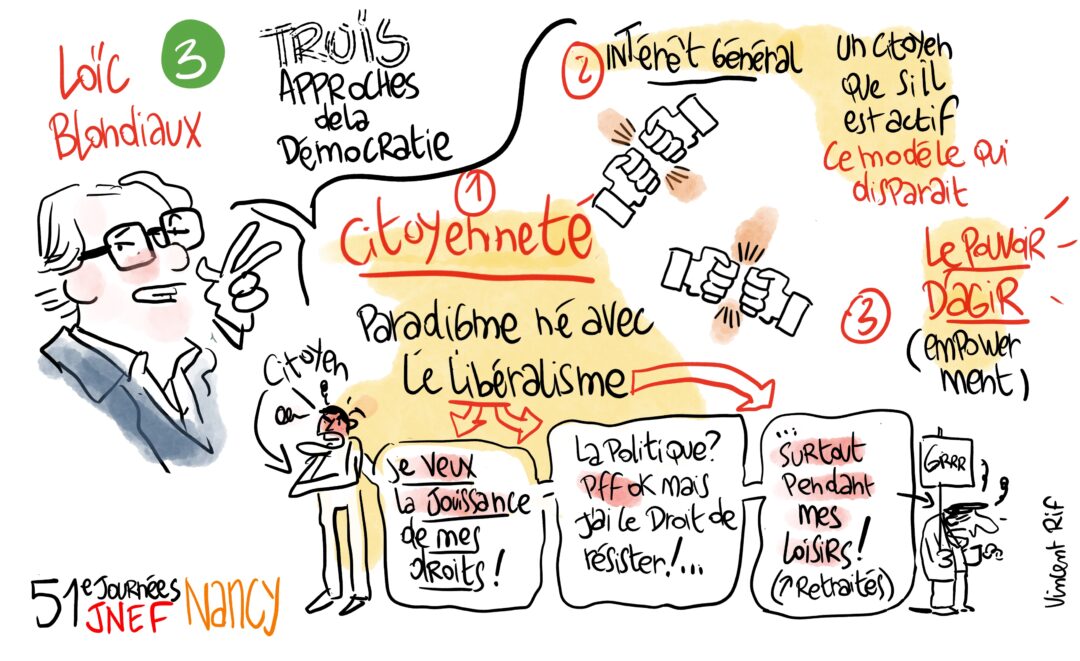 Loïc
Blondiaux
3
TROIS
APPROCHES
de la
Démocratie
1
Citoyenneté
Paradigme né avec
Le Libéralisme
2
INTérêt Général
Un Citoyen
que s'il
est actif
Ce modèle qui
disparait
3
Le Pouvoir
D'AGIR
(empower
ment)
Citoyen
Je veux
la Jouissance
de mes
droits !
La Politique?
Pff ok mais
j'ai le Droit de
résister!...
...
SURTOUT
Pendant
mes
LoisiRs!
(↑ Retraités)
GRRR
51e Journées
JNEF
Nancy
Vincent Rif